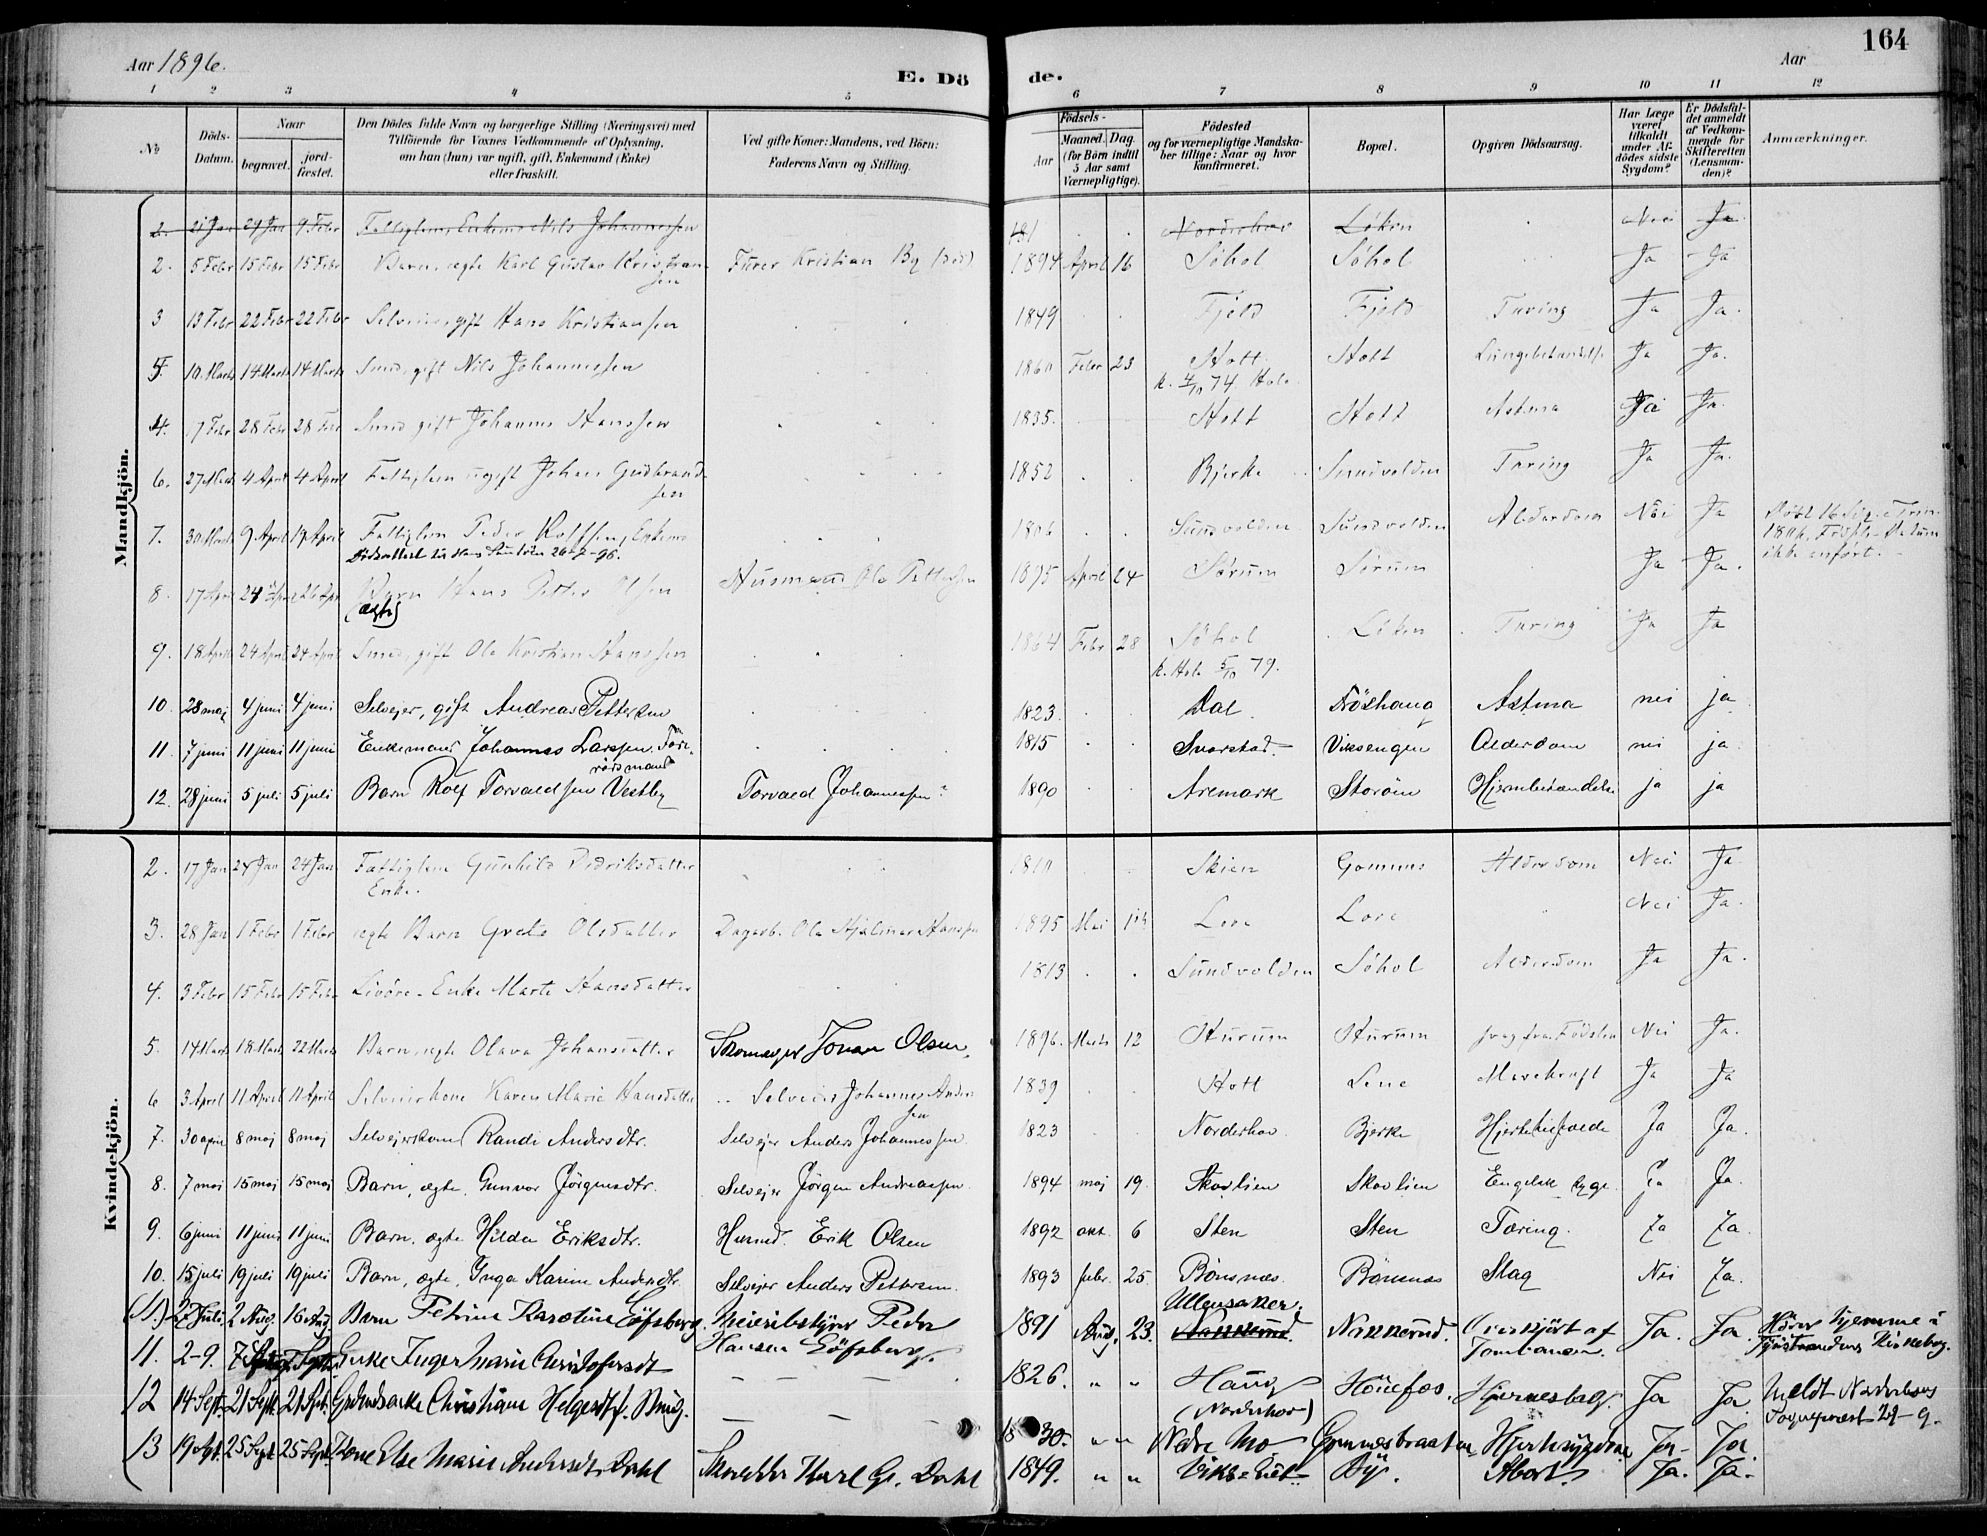 164
Aar 1896.
E. Dö de.
Aar
1 2 3 4 5 6 7 8 9 10 11 12
No
Döds-Datum.
Naar
begravet.
jord-fæstet.
Den Dödes fulde Navn og borgerlige Stilling (Næringsvei) med
Tilföiende for Voxnes Vedkommende af Oplysning,
om han (hun) var ugift, gift, Enkemand (Enke)
eller fraskilt.
Ved gifte Koner: Mandens, ved Börn:
Faderens Navn og Stilling.
Födsels-
Aar
Maaned. Dag
(for Börn indtil
5 Aar samt
Værnepligtige).
Födested
og for værnepligtige Mandska-
ber tillige: Naar og hvor
konfirmeret.
Bopæl.
Opgiven Dödsaarsag.
Har Læge
været
tilkaldt
under Af-
dödes sidste
Sygdom?
Er Dödsfal-
det anmeldt
af Vedkom-
mende for
Skifteretten
(Lensman-
den)?
Anmærkninger.
Mandkjön.
2. 21 Jan 29 Jan 9 Febr Fattiglem, Enkem Nils Johannessen 181 Norderhov Løken Nei Ja
2. 5 Febr 15 Febr 15 Febr Barn, ægte Karl Gustav Kristian-
sen Kristian By (død) 1894 April 16 Søhol Søhol Ja Ja
3 13 Febr 22 Febr 22 Febr Selveier gift Hans Kristiansen 1849 Fjeld Fjeld Tæring Ja Ja.
5. 10 Marts 14 Marts 14 Marts Smed, gift Nils Johannessen 1860 Febr 23 Stott Stott Lungebetændelse Ja Ja.
k. 4/10 74. Hole
4. 7 Febr 28 Febr 28 Febr Smed gift Johannes Hanssen 1835. Stott Stott Astma Ja Ja.
6. 27 Marts 4 April 4 April Fattiglem ugift Johan Gudbrand-
sen 1852 Bjerke Sundvolden Tæring Ja Ja.
7. 30 Marts 9 April 19 April Fattiglem Peder Rolfsen, Enkem 1806 Sundvolden Sundvolden Alderdom Nei Ja Døbt 16 Søg. e Trin
1806, Fødsels-Datum
ikke anført.
8. 17 April 24 Apr 26 Apr Barn Hans Petter Olsen Husmand Ole Pettersen 1895 April 24 Sørum Sørum Ja Ja.
(ægte)
9. 18 April 24 April 24 April Smed, gift Ole Kristian Hanssen 1864 Febr 28 Søhol Løken Tæring Ja Ja
k. Hole 5/10 79.
10. 28 maj 4 juni 4 juni Selvejer, gift Andreas Pettersen 1823 Dal Frøshaug Astma nei ja
11. 7 juni 11 juni 11 juni Enkemand Johannes Larssen. För-
rödsmand 1815 Svarstad Viksengen Alderdom nei ja
12. 28 juni 5 juli 5 juli Barn Rolf Torvaldsen Vestby Torvald Johannessen? 1890 Aremark Storøen Hjernebetændelse ja ja
Kvindekjön.
2. 17 Jan 24 Jan 24 Jan Fattiglem Gunhild Didriksdatter
Enke. 1810 Skien Gomnes Alderdom Nei Ja
3. 28 Jan 1 Febr 1 Febr ægte Barn Grete Olsdatter Dagarb. Ole Hjalmar Hanssen 1895 Mai Lore Lore Nei Ja.
4. 3 Febr 15 Febr 15 Febr Enke Marte Hansdatter 1813 Sundvolden Søhol Alderdom Ja Ja.
5. 14 Marts 18 Marts 22 Marts Barn, ægte Olava Johansdatter Skomager Johan Olsen. 1896. Marts 12 Hurum Hurum svag fra Fødslen Nei Ja.
6 3 April 11 April 11 April Selveierkone Karen Marie Hansdatter Selveier Johannes Ander-
sen 1839 Stott Lene Mavekræft Ja Ja
7. 30 april 8 maj 8 maj Selvejerkone Randi Andersdtr. Selvejer Anders Johannessen 1823 Norderhov Bjerke Ja Ja.
8. 7 maj 15 maj 15 maj Barn, ægte, Gunvor Jörgensdtr. Selvejer Jörgen Andreassen 1894 maj 19. Skovlien Skovlien Engelsk Syge. Ja Ja.
9. 6 juni 11 juni 11 juni Barn, ægte Hilda Eriksdtr. Husmd. Erik Olsen 1892 okt. 6 Sten Sten Tæring. Ja Ja.
10. 15 juli 19 juli 19 juli Barn, ægte, Inga Karine Andersdtr. Selvejer Anders Pettersen. 1893 febr. 25. Bönsnæs. Bönsnæs Slag Nei Ja.
Ullensaker.
27 Juli 2 Aug. 16 Aug Barn Petrine Karoline Löfsberg. Meieribestyrer Peder
Hansen Löfsberg. 1891 Aug. 23. Nakkerud. Nakkerud. Overkjört af
Jernbanen. Ja. Ja. Hörer hjemme i
Kirkebog.
11. 2-9. 7 Sept. Enke Inger Marie Christofersdt — — — 1826. " " Haug
(Norderhov) Hönefos. Hjerneslag. Ja Ja. Meldt Norderhovs
Sogneprest 21-9.
12 14 Sept. 21 Sept. 21 Sept. Christiane Helgesdt f. — — — 1830. " " Nedre Mo Gomnesbraaten Hjertesygdom Ja- Ja
13 19 Sept. 25 Sept 25 Sept. Kone Else Marie Andersdt. Dahl Skrædder Karl G. Dahl 1849. " " By. Abort Ja. Ja.